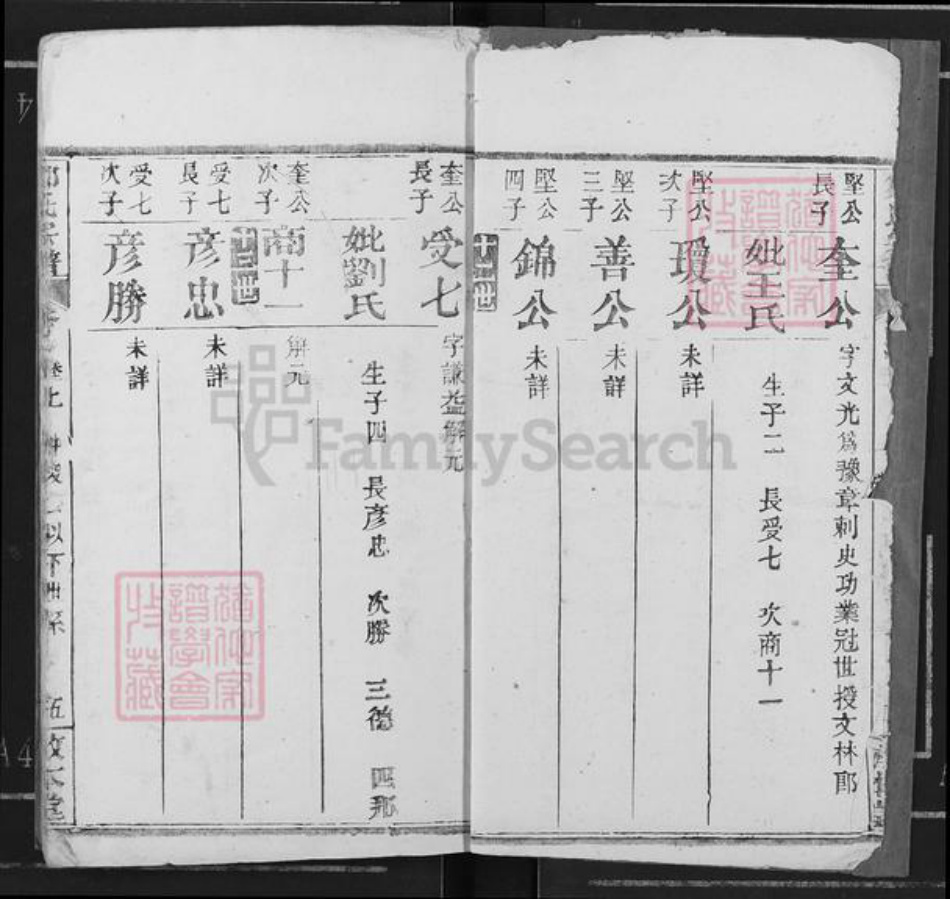 堅公長子
奎公
字文光爲豫章刺史功業冠世授文林郎
妣王氏
生子二 長受七 次商十一
堅公次子
瓊公
未詳
堅公三子
善公
未詳
堅公四子
錦公
未詳
十三世
奎公長子
受七
字謙益解元
妣劉氏
生子四 長彥忠 次勝 三德 四那
奎公次子
商十一
解元
十四世
受七長子
彥忠
未詳
受七次子
彥勝
未詳
伍
FamilySearch
譜學會